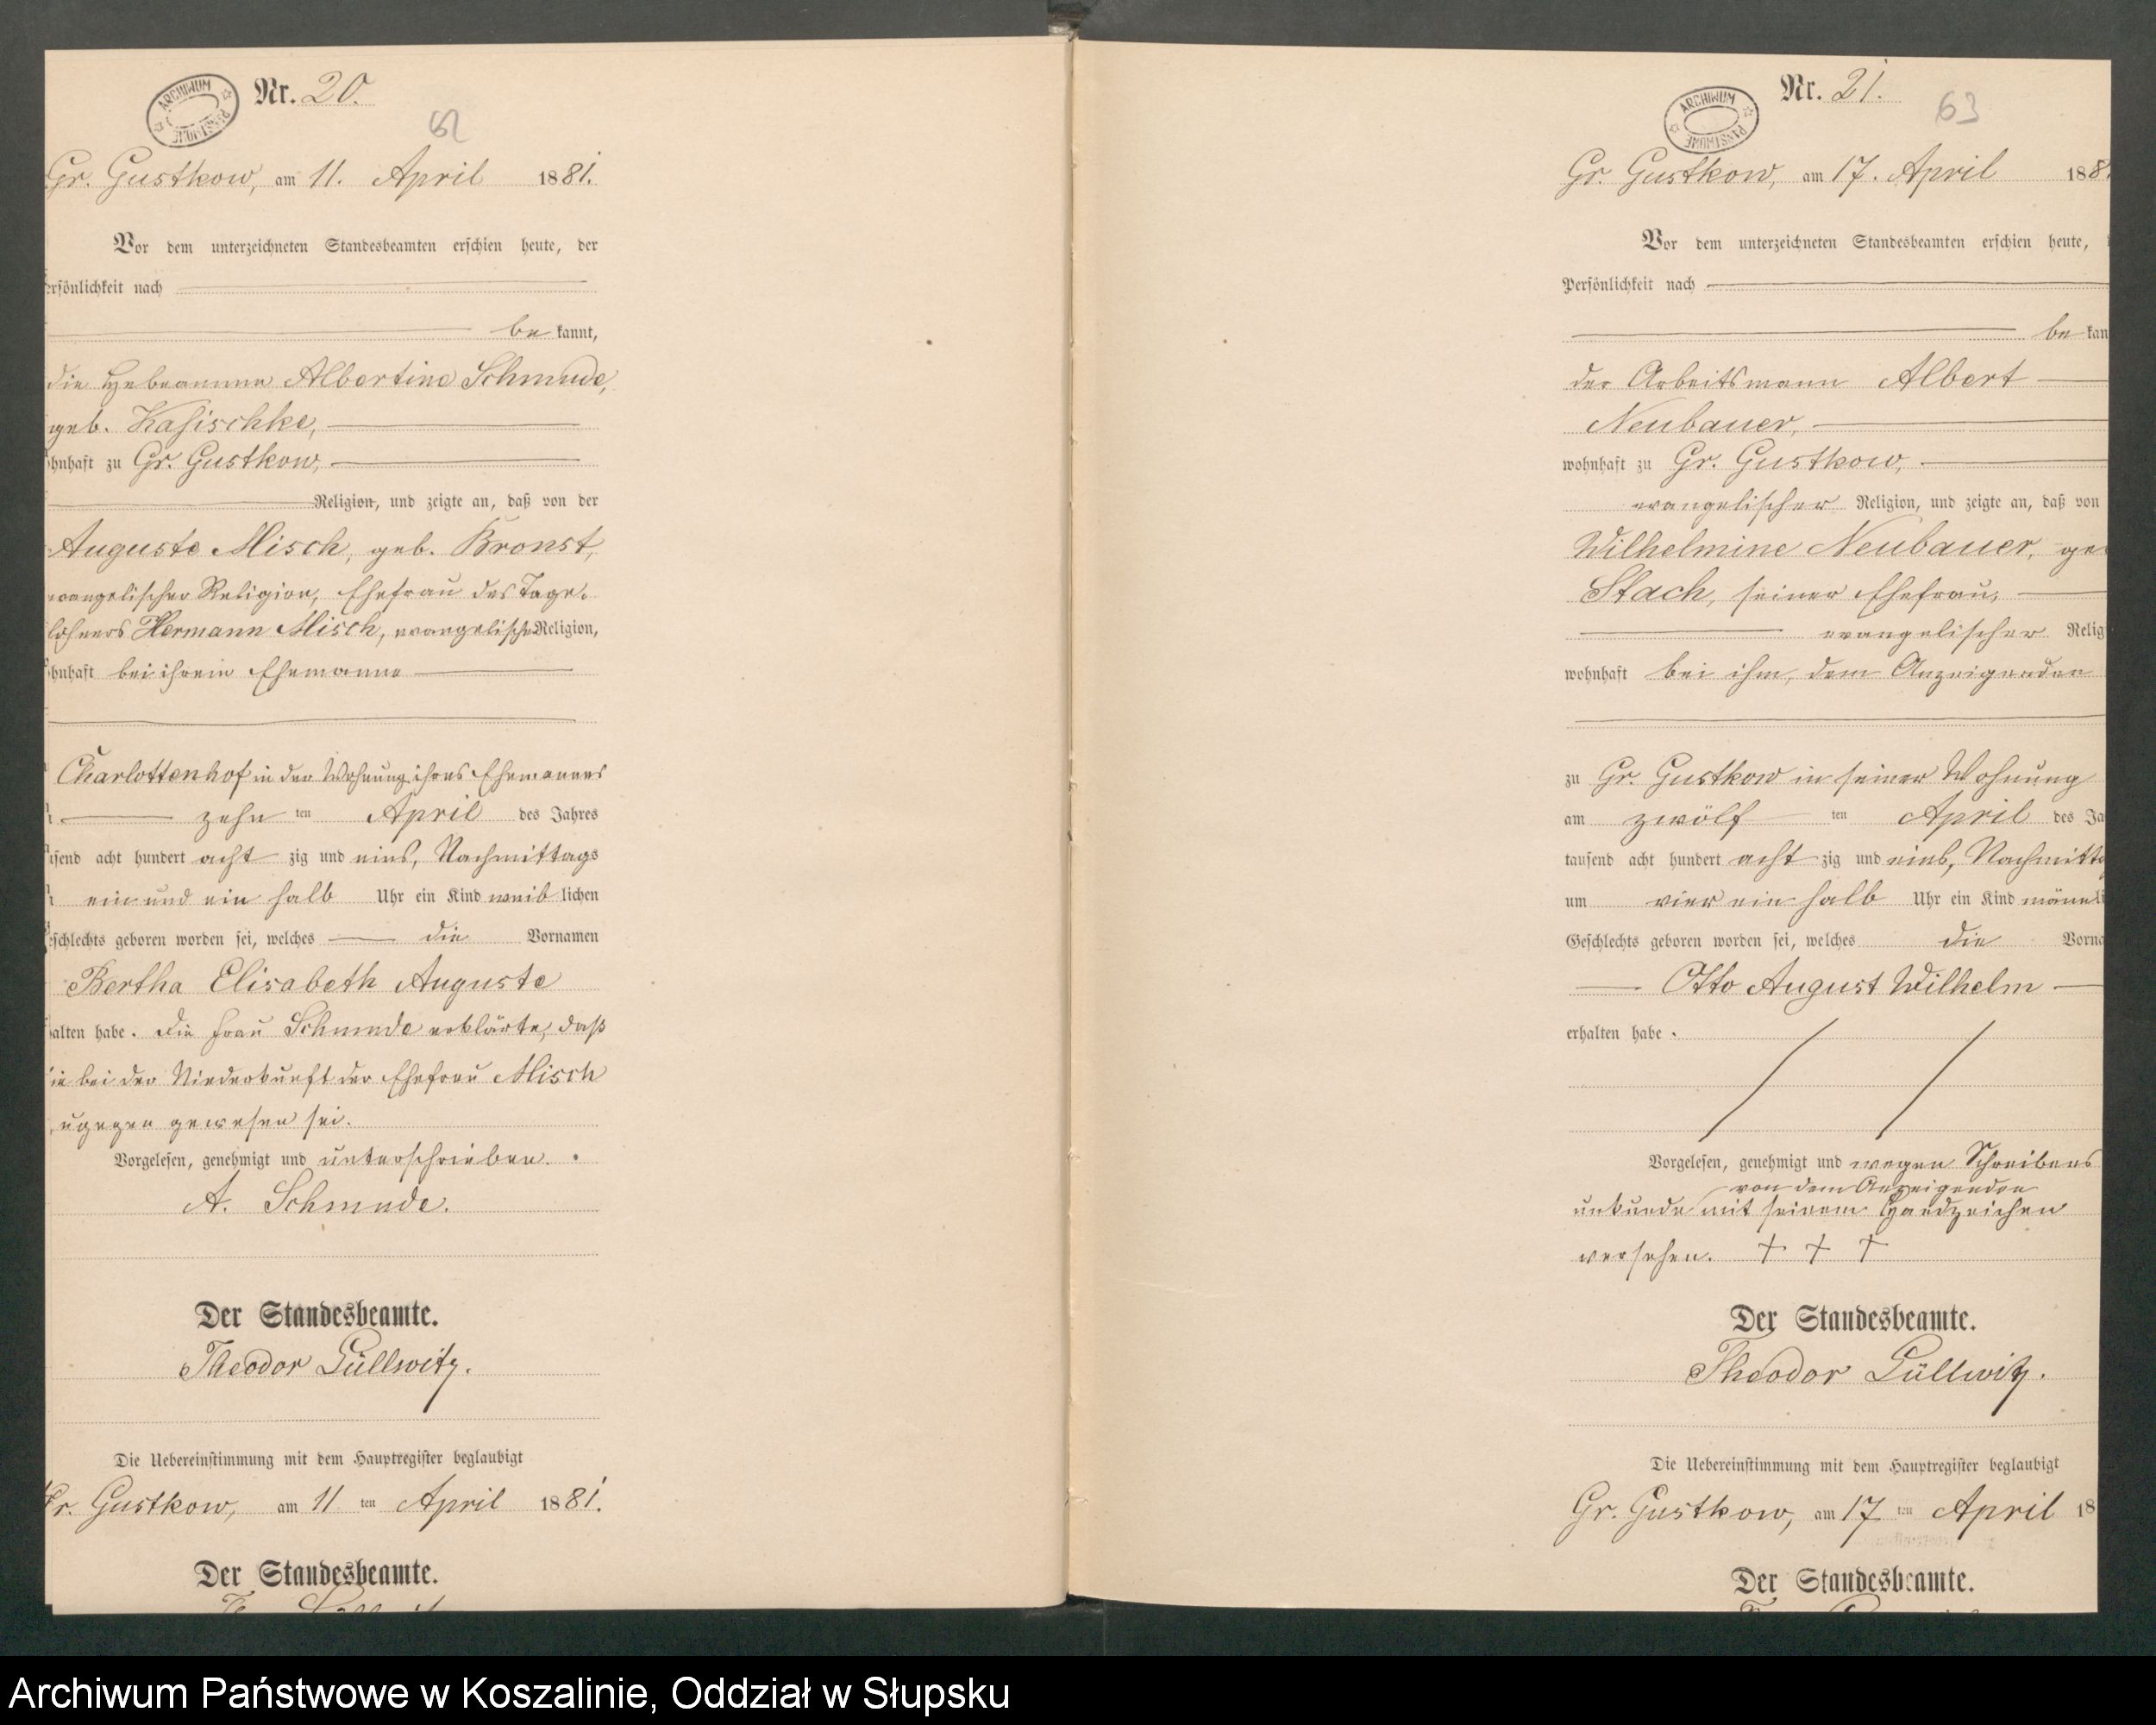 Nr. 20.
62
Gr. Gustkow, am 11. April 1881.
Vor dem unterzeichneten Standesbeamten erschien heute, der
ersönlichkeit nach
be kannt,
die Hebeamme Albertine Schmude,
geb. Kasischke,
ohnhaft zu Gr. Gustkow,
Religion, und zeigte an, daß von der
Auguste Misch, geb. Bronst,
evangelischer Religion, Ehefrau des Tage-
löhners Hermann Misch, evangelischer Religion,
ohnhaft bei ihrem Ehemanne
Charlottenhof in der Wohnung ihres Ehemannes
zehn ten April des Jahres
usend acht hundert acht zig und eins, Nachmittags
ein und ein halb Uhr ein Kind weib lichen
eschlechts geboren worden sei, welches die Vornamen
Bertha Elisabeth Auguste
alten habe. Die Frau Schmude erklärte, daß
ie bei der Niederkunft der Ehefrau Misch
ugegen gewesen sei.
Vorgelesen, genehmigt und unterschrieben.
A. Schmude.
Der Standesbeamte.
Theodor Güllwitz.
Die Uebereinstimmung mit dem Hauptregister beglaubigt
Gr. Gustkow, am 11 ten April 1881.
Der Standesbeamte.
ARCHIWUM PAŃSTWOWE
Nr. 21.
63
ARCHIWUM PAŃSTWOWE
Gr. Gustkow, am 17. April 188
Vor dem unterzeichneten Standesbeamten erschien heute,
Persönlichkeit nach
be kan
der Arbeitsmann Albert
Neubauer,
wohnhaft zu Gr. Gustkow,
evangelischer Religion, und zeigte an, daß von
Wilhelmine Neubauer, ge
Stach, seiner Ehefrau,
evangelischer Relig
wohnhaft bei ihm, dem Anzeigenden
zu Gr. Gustkow in seiner Wohnung
am zwölf ten April des Ja
tausend acht hundert acht zig und eins, Nachmitta
um vier ein halb Uhr ein Kind männli
Geschlechts geboren worden sei, welches die Vorna
Otto August Wilhelm
erhalten habe.
Vorgelesen, genehmigt und wegen Schreibens
von dem Anzeigenden
unkunde mit seinem Handzeichen
versehen. + + +
Der Standesbeamte.
Theodor Güllwitz.
Die Uebereinstimmung mit dem Hauptregister beglaubigt
Gr. Gustkow, am 17 ten April 18
Der Standesbeamte.
Archiwum Państwowe w Koszalinie, Oddział w Słupsku